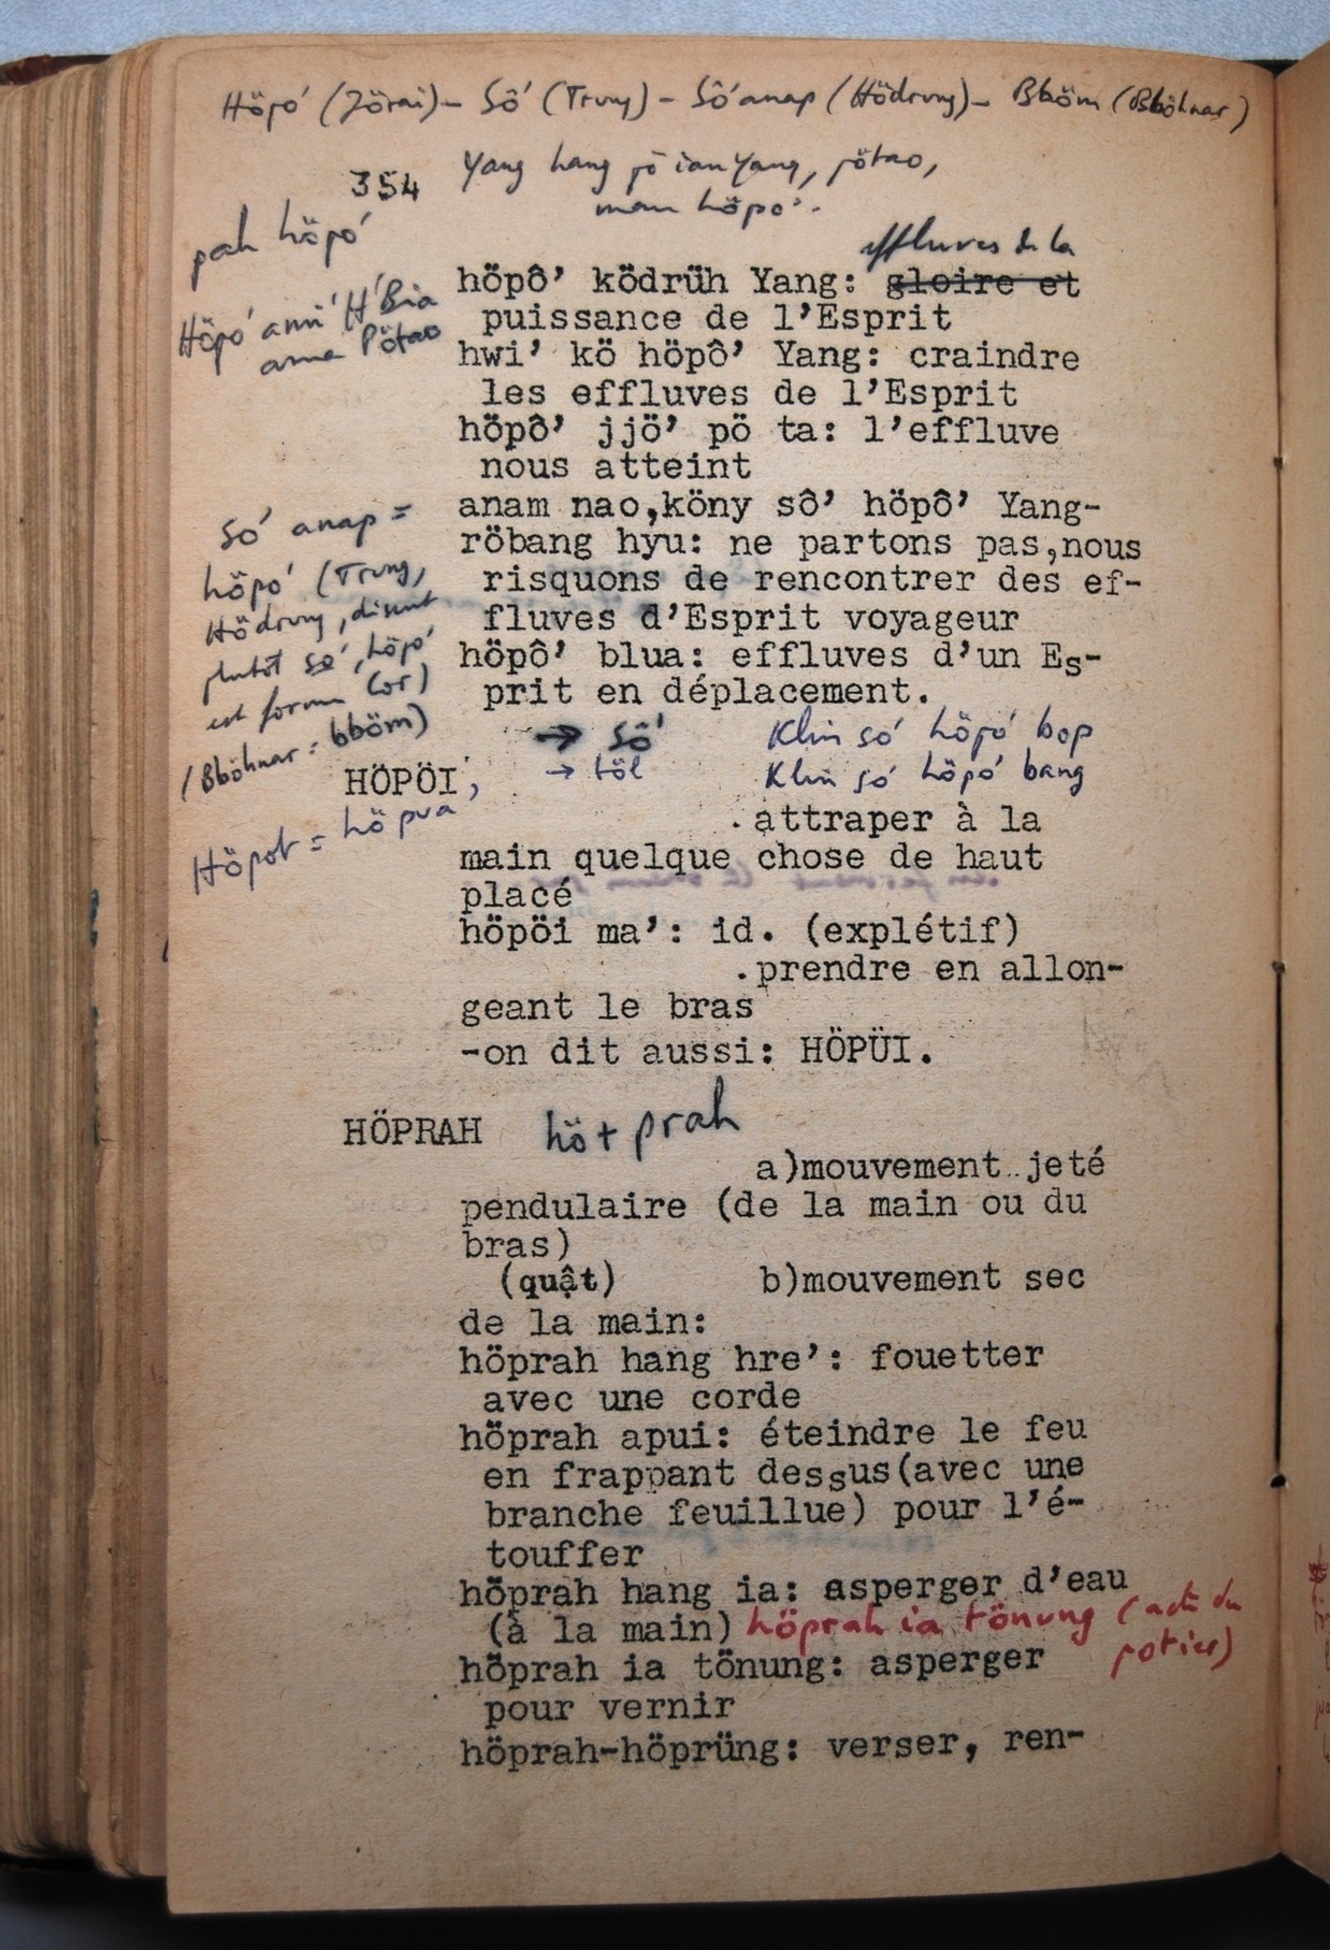 Höpó' (Jörai) - Sô' (Trung) - Sô' anap (Hödrung) - Bböm (Bböhnar)
354
Yang hang pö ian Yang, pötao,
höpo'.
pah höpó'
Höpó' H'Bia
Pötao
effluves de la
höpô’ ködrüh Yang: gloire et
puissance de l’Esprit
hwi’ kö höpô’ Yang: craindre
les effluves de l’Esprit
höpô’ jjö’ pö ta: l’effluve
nous atteint
anam nao,köny sô’ höpô’ Yang-
röbang hyu: ne partons pas,nous
risquons de rencontrer des ef-
fluves d’Esprit voyageur
höpô’ blua: effluves d’un Es-
prit en déplacement.
só' anap =
höpó' (Trung,
Hödrung, disent
plutôt só', höpó'
est forme (or)
(Bböhnar = bböm)
→ sô'
→ töl
Klin só' höpó' bop
Klin só' höpó' bang
HÖPÖI,
Höpot = höpua
.attraper à la
main quelque chose de haut
placé
höpöi ma’: id. (explétif)
.prendre en allon-
geant le bras
-on dit aussi: HÖPÜI.
HÖPRAH hö + prah
a)mouvement jeté
pendulaire (de la main ou du
bras)
(quật) b)mouvement sec
de la main:
höprah hang hre’: fouetter
avec une corde
höprah apui: éteindre le feu
en frappant dessus(avec une
branche feuillue) pour l’é-
touffer
höprah hang ia: asperger d’eau
(à la main) höprah ia tönung (acte du
potier)
höprah ia tönung: asperger
pour vernir
höprah-höprüng: verser, ren-